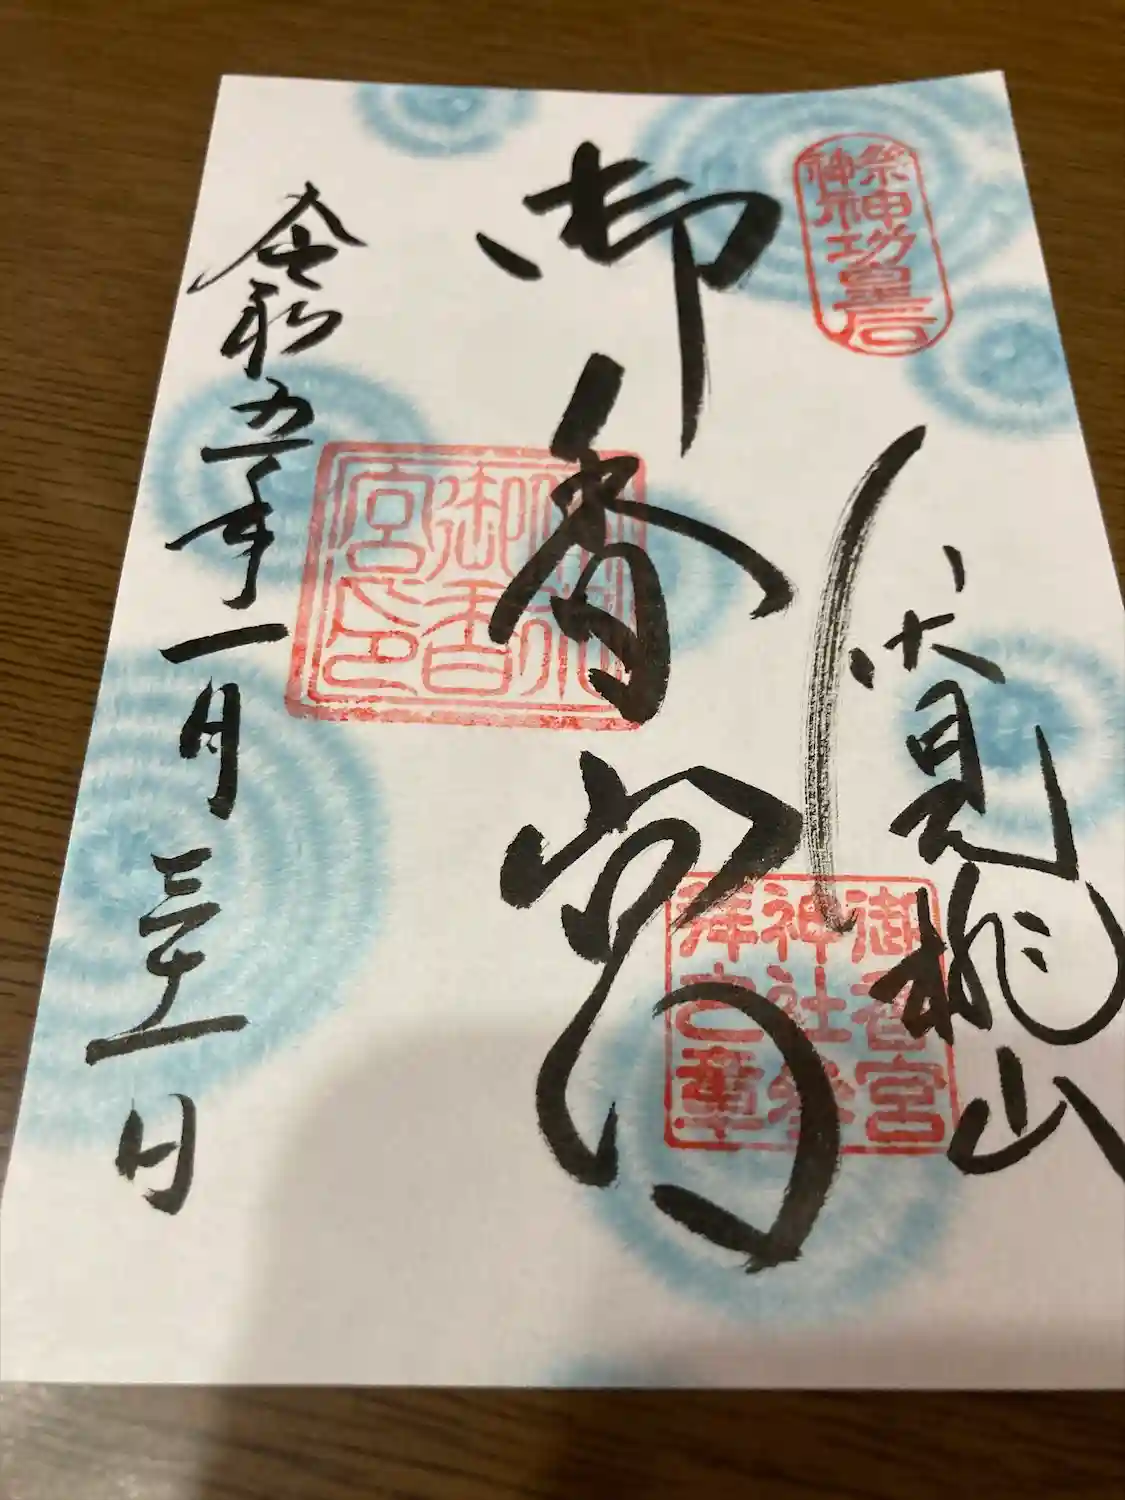 祭神
神功皇后
伏見桃山
御香宮
神社参
拝之章
御香宮
御香
宮印
令和五年一月三十一日